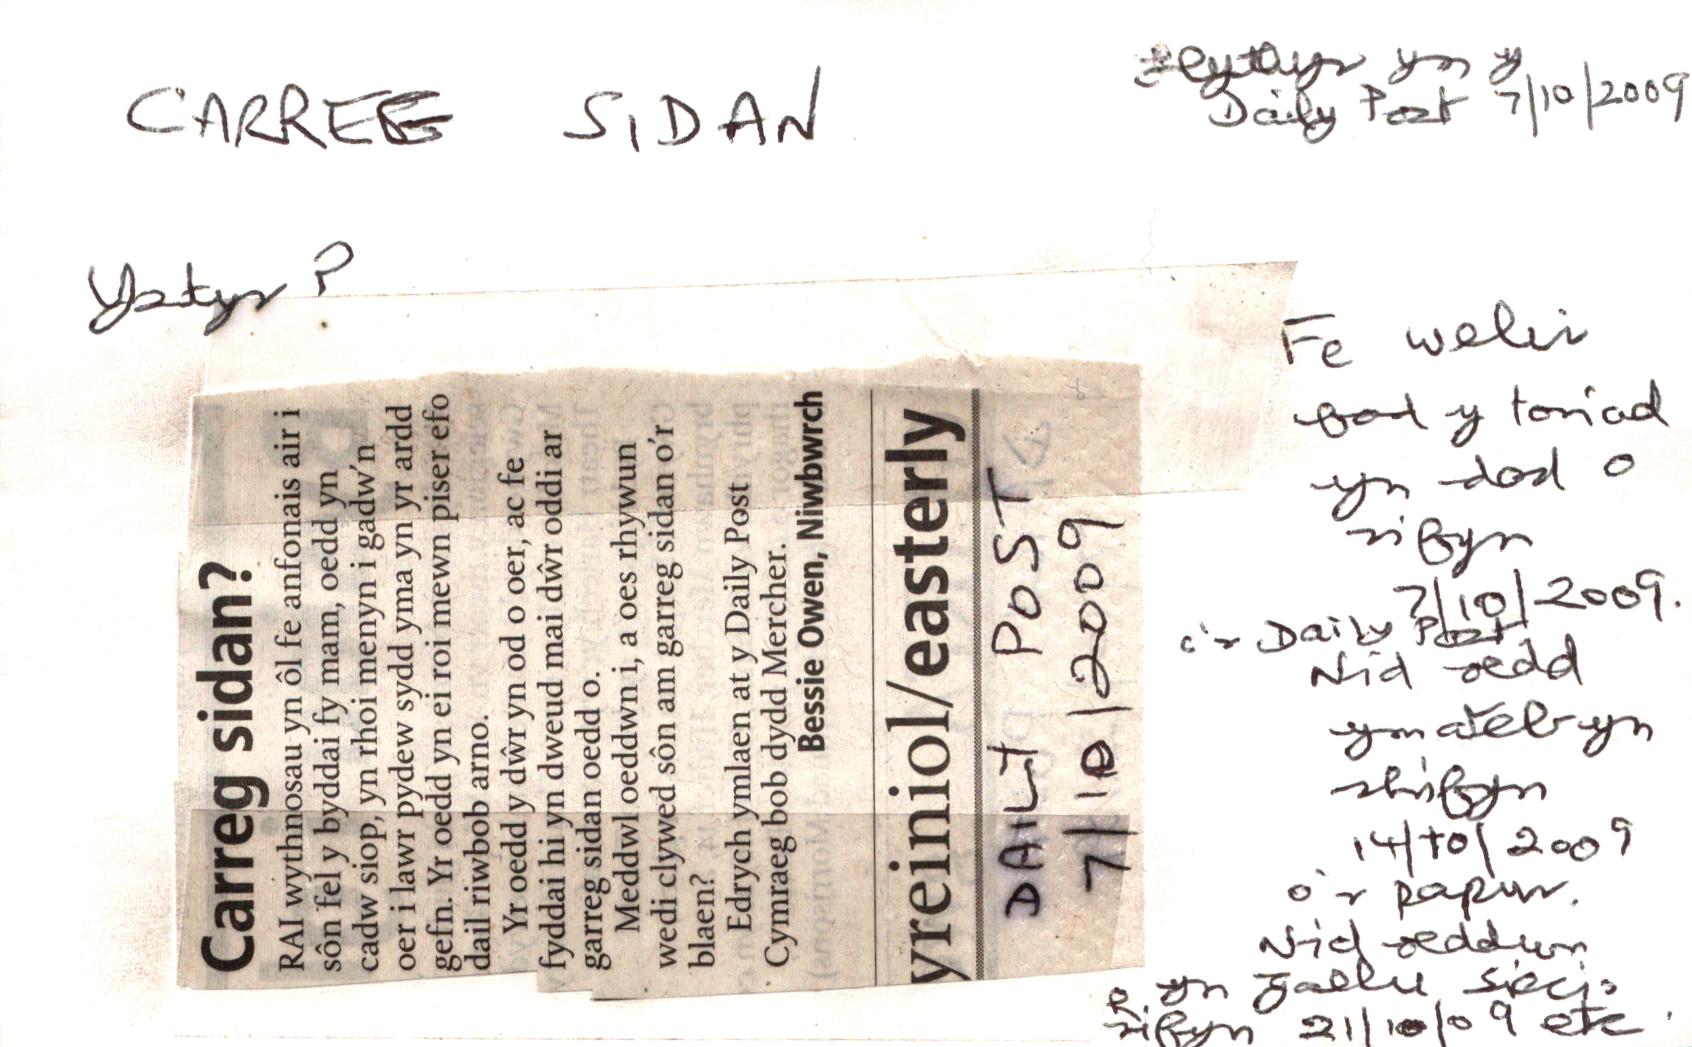 CARREG SIDAN
llythyr yn y
Daily Post 7/10/2009
Ystyr?
Carreg sidan?
RAI wythnosau yn ôl fe anfonais air i
sôn fel y byddai fy mam, oedd yn
cadw siop, yn rhoi menyn i gadw'n
oer i lawr pydew sydd yma yn yr ardd
gefn. Yr oedd yn ei roi mewn piser efo
dail riwbob arno.
Yr oedd y dŵr yn od o oer, ac fe
fyddai hi yn dweud mai dŵr oddi ar
garreg sidan oedd o.
Meddwl oeddwn i, a oes rhywun
wedi clywed sôn am garreg sidan o'r
blaen?
Edrych ymlaen at y Daily Post
Cymraeg bob dydd Mercher.
Bessie Owen, Niwbwrch
yreiniol/easterly
DAILY POST
7/10/2009
Fe welir
fod y toriad
yn dod o
rifyn
7/10/2009.
o'r Daily Post
Nid oedd
ymateb yn
rhifyn
14/10/2009
o'r papur.
Nid oeddwn
yn gallu siecio
rifyn 21/10/09 etc.